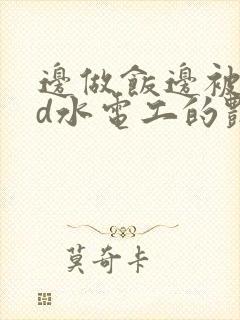 邊做飯邊被
d水電工的
莫奇卡